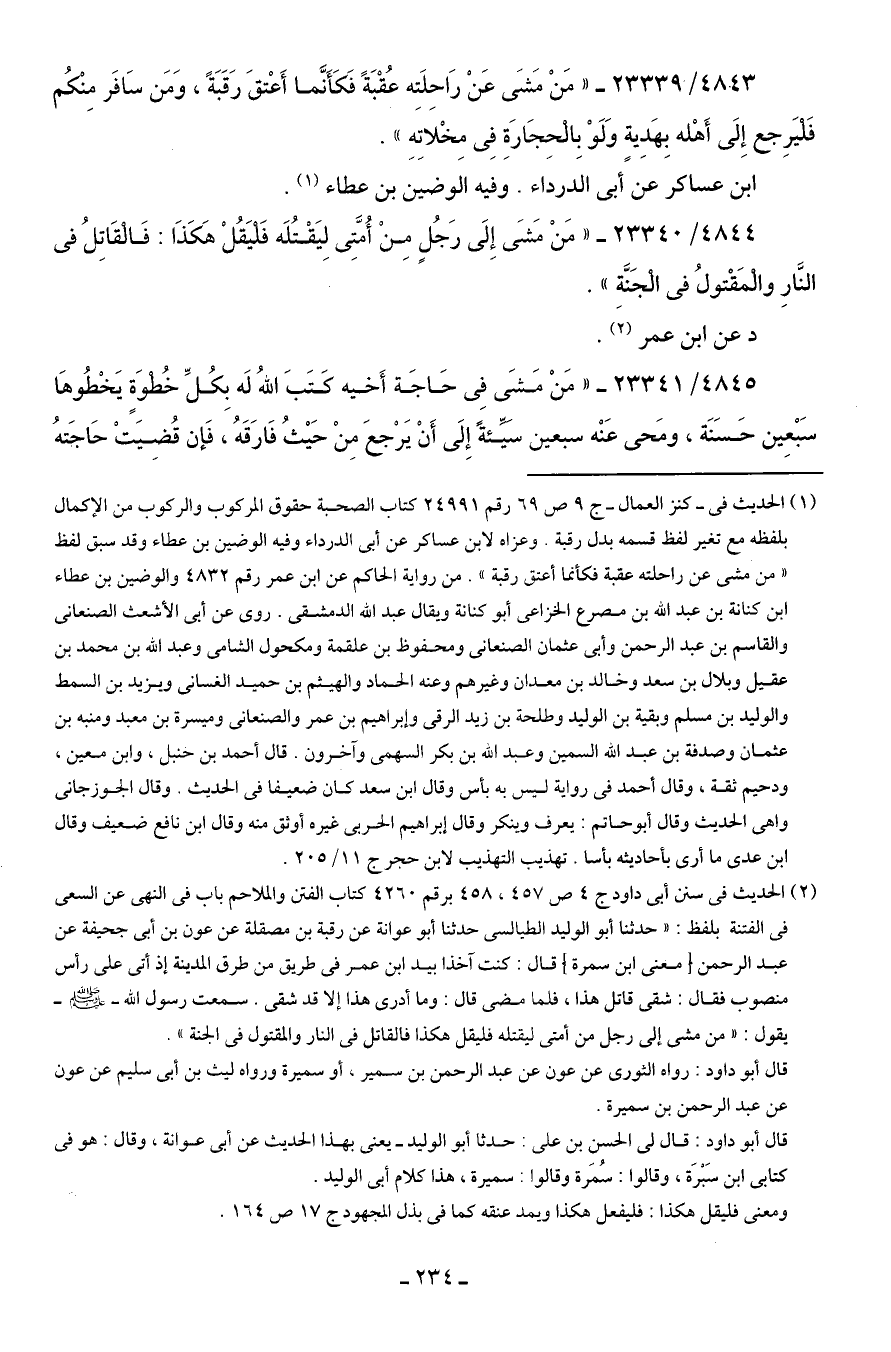 ٤٨٤٣/ ٢٣٣٣٩ ـ « مَنْ مَشَى عَنْ رَاحِلَتِه عُقْبَةً فَكَأَنَّمـا أَعْتَقَ رَقَبَةً ، وَمَن سَافَر مِنْكُم
فَلْيَرجِع إِلَى أَهْله بِهَدِيةٍ وَلَوْ بِالْحِجَارَةِ فِى مِخْلاتِهِ » .
ابن عساكر عن أبى الدرداء . وفيه الوضين بن عطاء (١) .
٤٨٤٤/ ٢٣٣٤٠ ـ « مَنْ مَشَى إِلَى رَجُلٍ مِـنْ أُمَّتِى لِيَقْـتُلَه فَلْيَقُلْ هَكَذَا : فَـالْقَاتِلُ فى
النَّارِ والْمَقْتولُ فى الْجَنَّةِ » .
د عن ابن عمر (٢) .
٤٨٤٥/ ٢٣٣٤١ ـ « مَنْ مَـشَى فِى حَـاجَـةِ أخـيه كَـتَبَ اللهُ لَه بِكُـلِّ خُطْوَةٍ يَخْطُوهَا
سَبْعِين حَـسَنَة ، ومَحى عَنْه سبعين سَيِّـئةً إِلَى أَنْ يَرْجعَ مِنْ حَيْثُ فَارَقَهُ ، فَإِن قُضـيَتْ حَاجَتهُ
(١) الحديث فى ـ كنز العمال ـ ج ٩ ص ٦٩ رقم ٢٤٩٩١ كتاب الصحبة حقوق المركوب والركوب من الإكمال
بلفظه مع تغير لفظ قسمه بدل رقبة . وعزاه لابن عساكر عن أبى الدرداء وفيه الوضين بن عطاء وقد سبق لفظ
« من مشى عن راحلته عقبة فكأنما أعتق رقبة » . من رواية الحاكم عن ابن عمر رقم ٤٨٣٢ والوضين بن عطاء
ابن كنانة بن عبد الله بن مـصرع الخزاعى أبو كنانة ويقال عبد الله الدمشـقى . روى عن أبى الأشعث الصنعانى
والقاسم بن عبد الرحمن وأبى عثمان الصنعانى ومحـفوظ بن علقمة ومكحول الشامى وعبد الله بن محمد بن
عقـيل وبلال بن سعد وخـالد بن معـدان وغيرهم وعنه الحـماد والهيـثم بن حميـد الغسانى ويـزيد بن السمط
والوليد بن مسلم وبقية بن الوليد وطلحة بن زيد الرقى وإبراهيم بن عمر والصنعانى وميسرة بن معبد ومنبه بن
عثمـان وصدفة بن عبـد الله السمين وعـبد الله بن بكر السهمى وآخـرون . قال أحمد بن حنبل ، وابن مـعين ،
ودحيم ثقـة ، وقال أحمد فى رواية لـيس به بأس وقال ابن سعد كـان ضعيفا فى الحديث . وقال الجـوزجانى
واهى الحديث وقال أبوحـاتم : يعرف وينكر وقال إبراهيم الحـربى غيره أوثق منه وقال ابن نافع ضـعيف وقال
ابن عدى ما أرى بأحاديثه بأسا . تهذيب التهذيب لابن حجر ج ١١/ ٢٠٥ .
(٢) الحديث فى سنن أبى داود ج ٤ ص ٤٥٧ ، ٤٥٨ برقم ٤٢٦٠ كتاب الفتن والملاحم باب فى النهى عن السعى
فى الفتنة بلفظ : « حدثنا أبو الوليد الطيالسى حدثنا أبو عوانة عن رقبة بن مصقلة عن عون بن أبى جحيفة عن
عبـد الرحمن { مـعنى ابن سمرة } قـال : كنت آخذا بيـد ابن عمـر فى طريق من طرق المدينة إذ أتى على رأس
منصوب فقـال : شقى قاتل هذا ، فلما مـضى قال : وما أدرى هذا إلا قد شقى . سـمعت رسول الله ـ ﷺ ـ
يقول : « من مشى إلى رجل من أمتى ليقتله فليقل هكذا فالقاتل فى النار والمقتول فى الجنة » .
قال أبو داود : رواه الثورى عن عون عن عبد الرحمن بن سـمير ، أو سميرة ورواه ليث بن أبى سليم عن عون
عن عبد الرحمن بن سميرة .
قال أبو داود : قـال لى الحسن بن على : حـدثا أبو الوليد ـ يعنى بهـذا الحديث عن أبى عـوانة ، وقال : هو فى
كتابى ابن سَبْرَة ، وقالوا : سُمَرة وقالوا : سميرة ، هذا كلام أبى الوليد .
ومعنى فليقل هكذا : فليفعل هكذا ويمد عنقه كما فى بذل المجهود ج ١٧ ص ١٦٤ .
ـ ٢٣٤ ـ